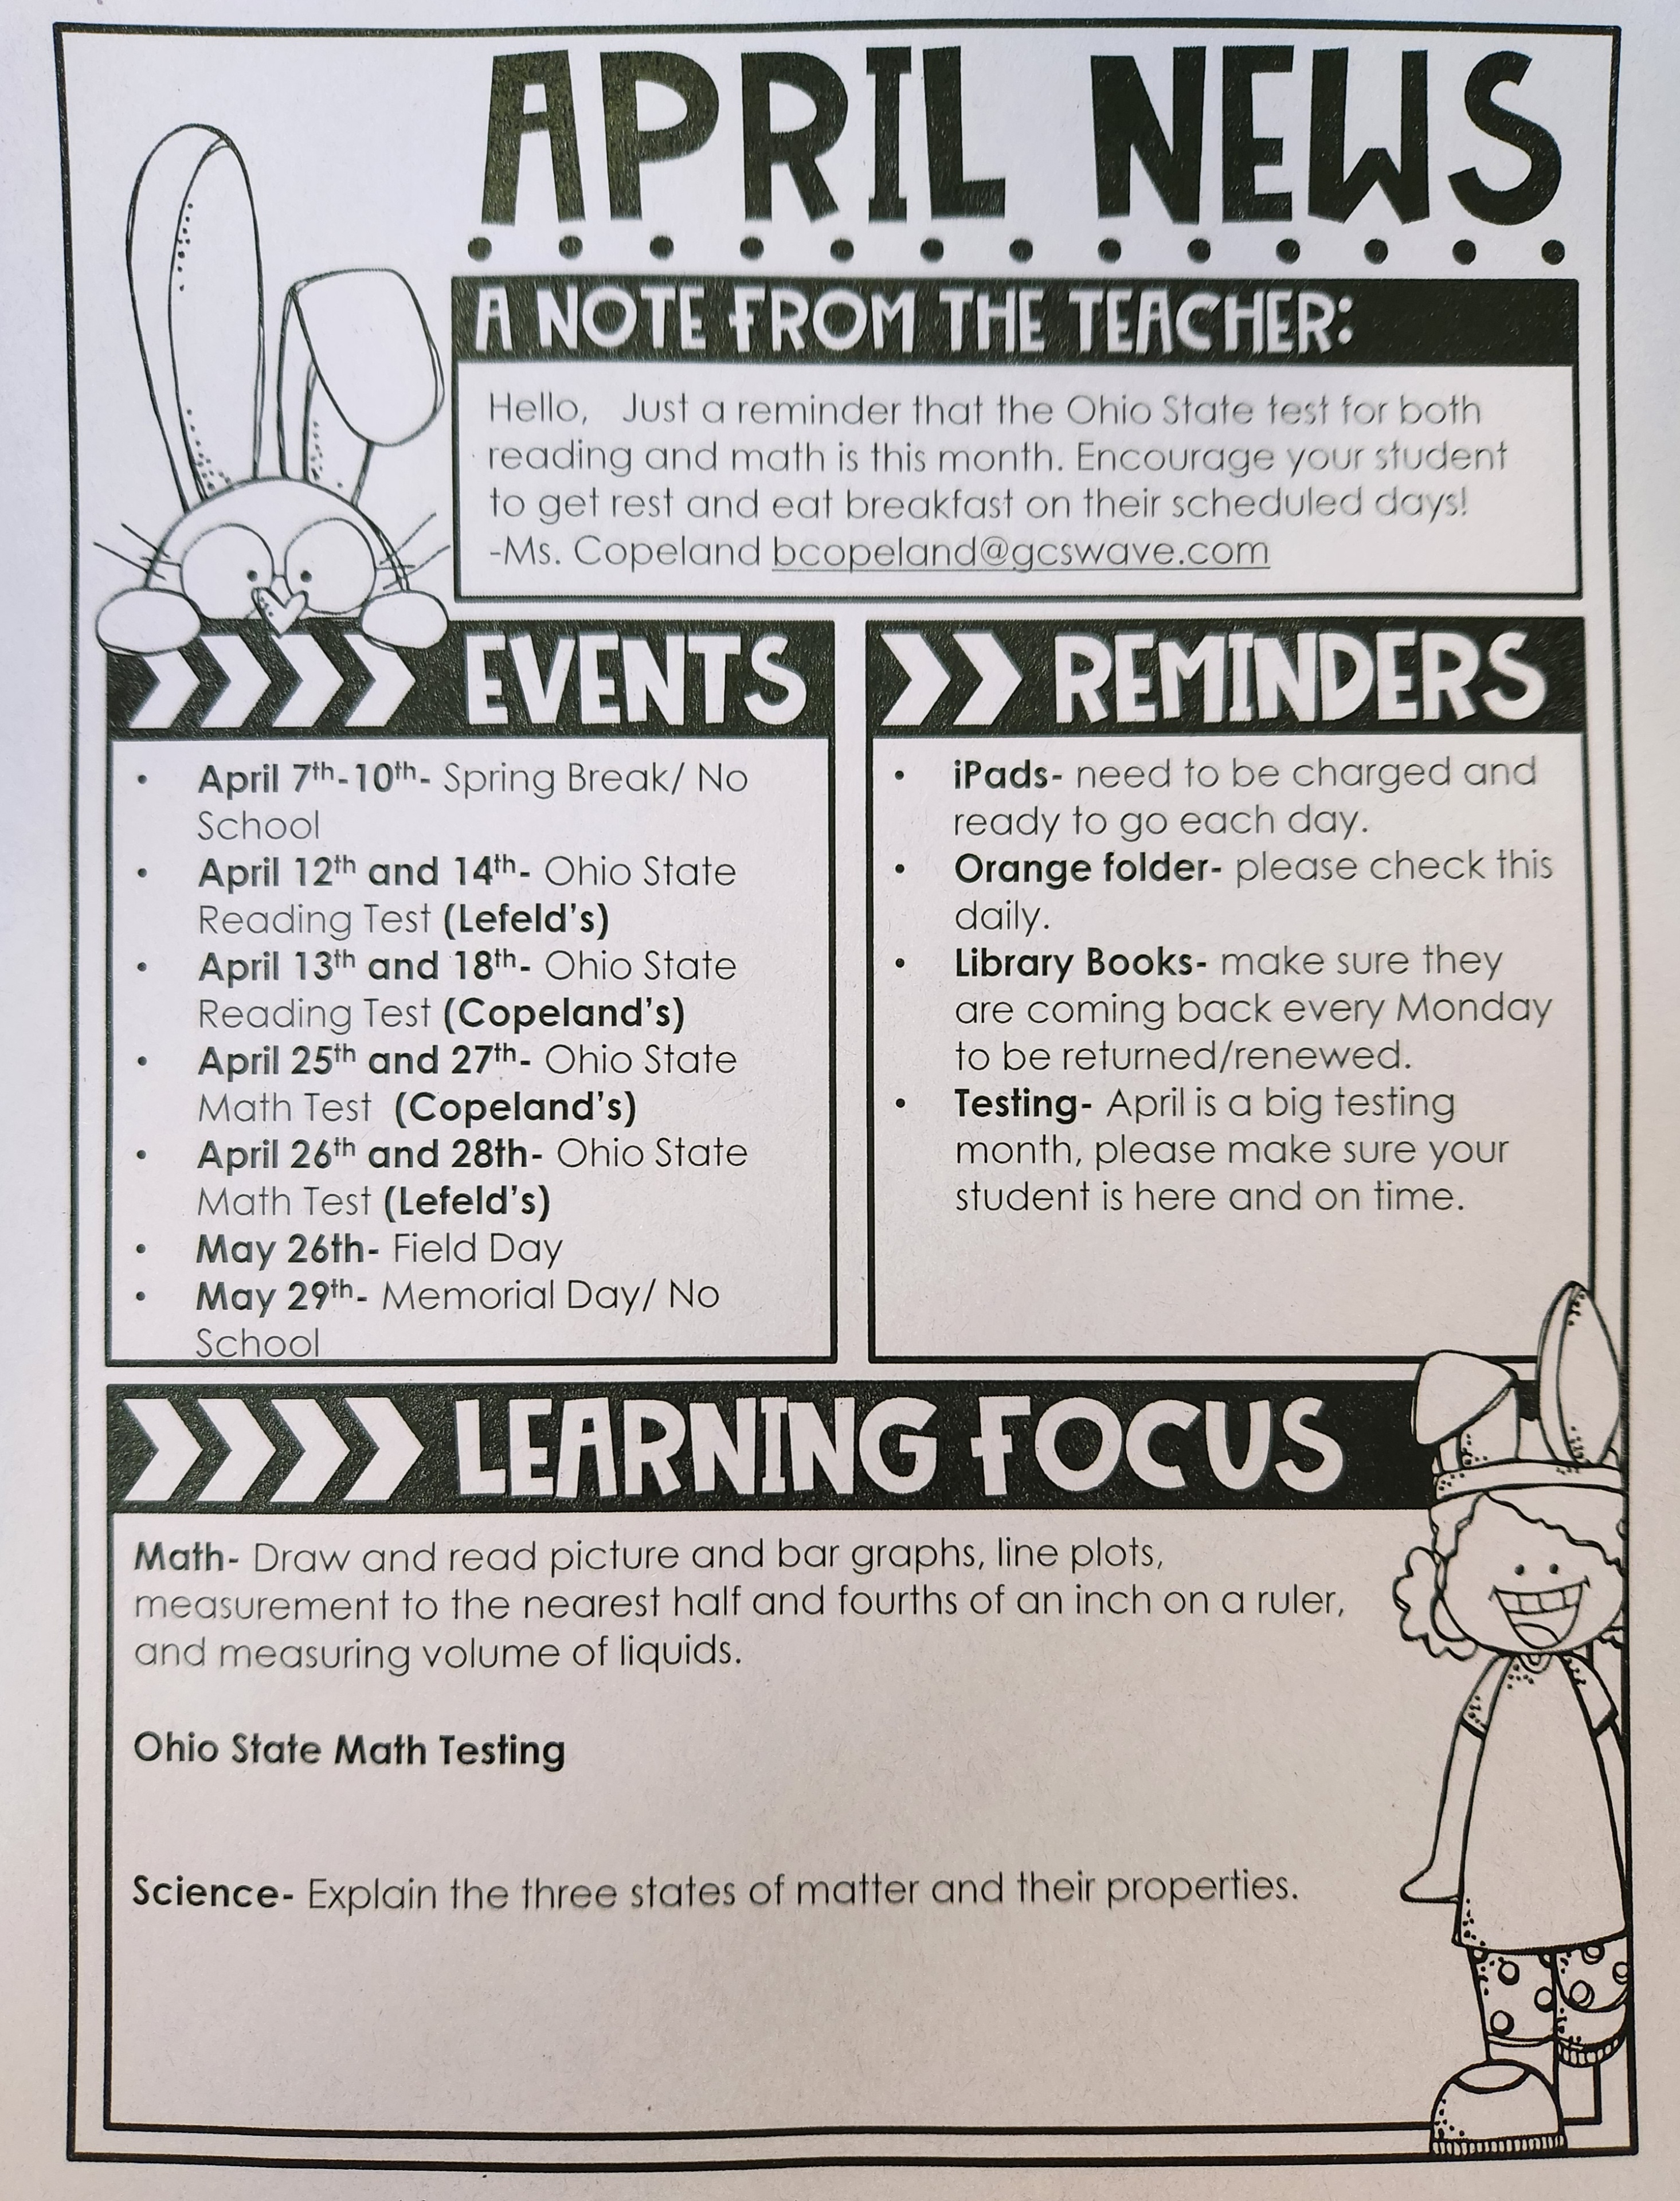 APRIL NEWS
A NOTE FROM THE TEACHER:
Hello,   Just a reminder that the Ohio State test for both
reading and math is this month. Encourage your student
to get rest and eat breakfast on their scheduled days!
-Ms. Copeland bcopeland@gcswave.com
EVENTS
• April 7th-10th- Spring Break/ No
School
• April 12th and 14th- Ohio State
Reading Test (Lefeld's)
• April 13th and 18th- Ohio State
Reading Test (Copeland's)
• April 25th and 27th- Ohio State
Math Test  (Copeland's)
• April 26th and 28th- Ohio State
Math Test (Lefeld's)
• May 26th- Field Day
• May 29th- Memorial Day/ No
School
REMINDERS
• iPads- need to be charged and
ready to go each day.
• Orange folder- please check this
daily.
• Library Books- make sure they
are coming back every Monday
to be returned/renewed.
• Testing- April is a big testing
month, please make sure your
student is here and on time.
LEARNING FOCUS
Math- Draw and read picture and bar graphs, line plots,
measurement to the nearest half and fourths of an inch on a ruler,
and measuring volume of liquids.
Ohio State Math Testing
Science- Explain the three states of matter and their properties.